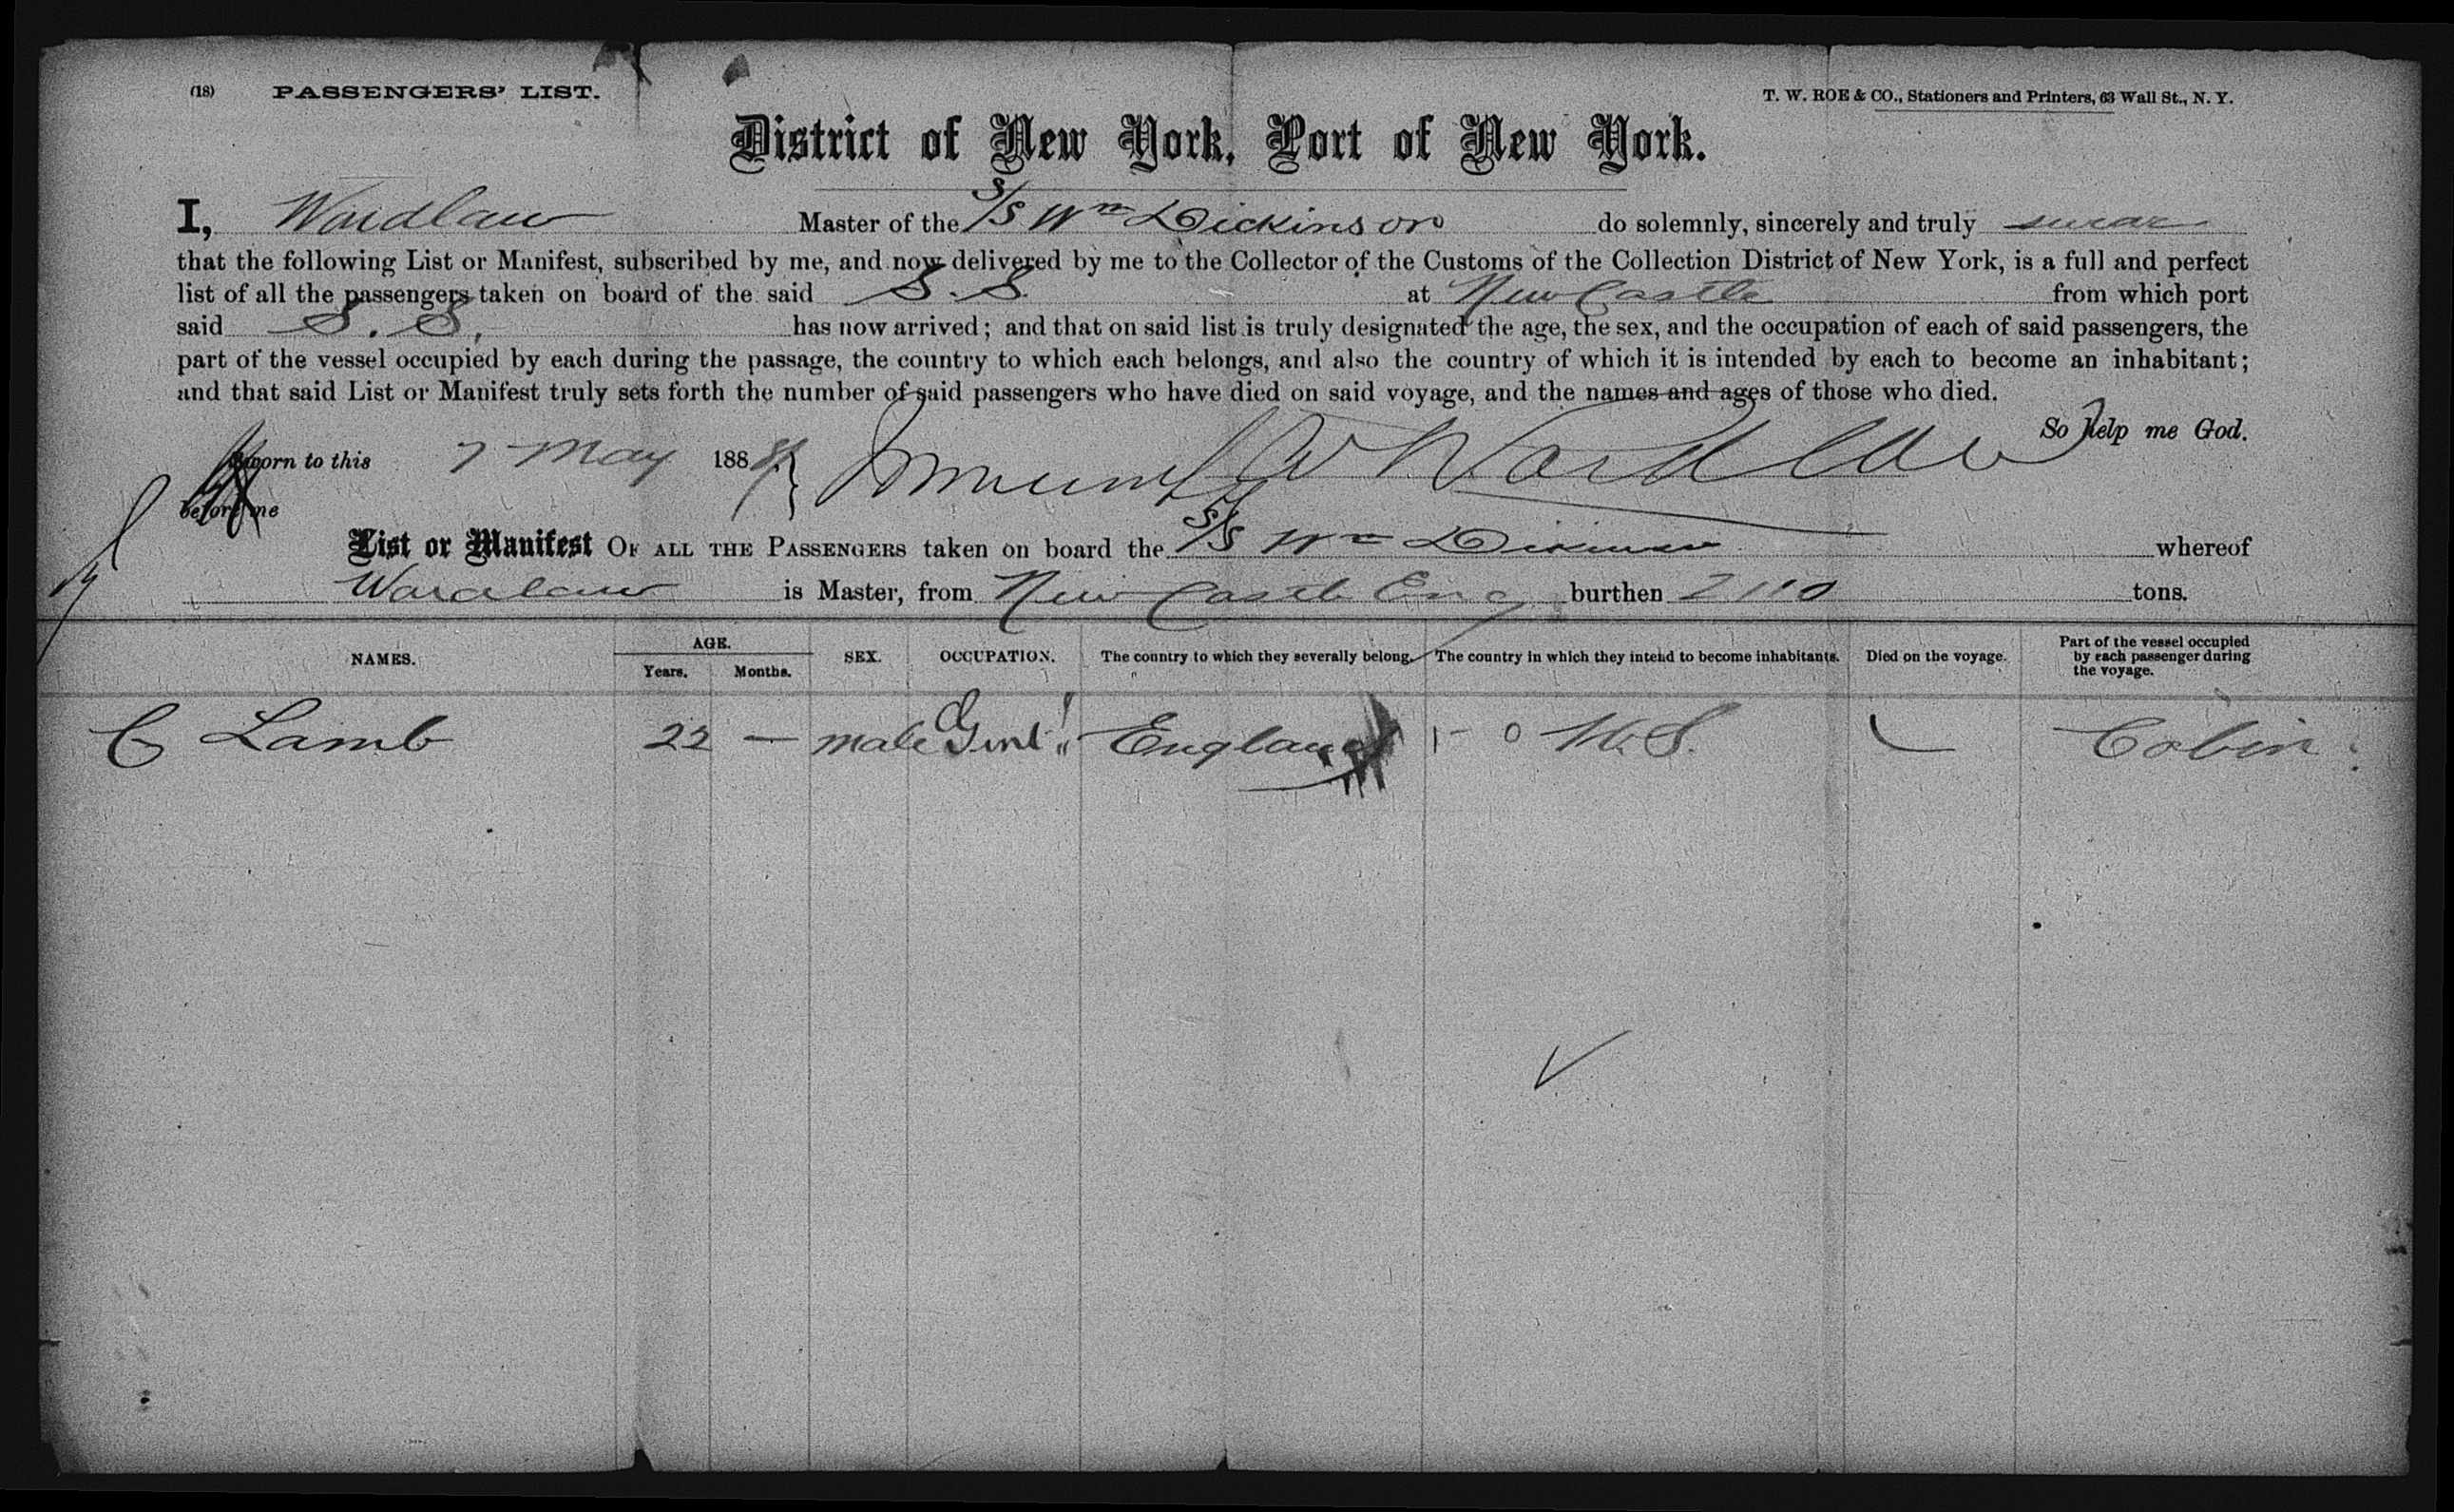 (18) PASSENGERS' LIST.
T. W. ROE & CO., Stationers and Printers, 63 Wall St., N. Y.
District of New York, Port of New York.
I, Wardlaw Master of the S/S Wm Dickinson do solemnly, sincerely and truly swear
that the following List or Manifest, subscribed by me, and now delivered by me to the Collector of the Customs of the Collection District of New York, is a full and perfect
list of all the passengers taken on board of the said S. S. at New Castle from which port
said S. S. has now arrived; and that on said list is truly designated the age, the sex, and the occupation of each of said passengers, the
part of the vessel occupied by each during the passage, the country to which each belongs, and also the country of which it is intended by each to become an inhabitant;
and that said List or Manifest truly sets forth the number of said passengers who have died on said voyage, and the names and ages of those who died.
So help me God.
Sworn to this 7 May 188 W Wardlaw
before me
List or Manifest OF ALL THE PASSENGERS taken on board the S/S Wm whereof
Wardlaw is Master, from New Castle Eng burthen 2110 tons.
NAMES. AGE. Years. Months. SEX. OCCUPATION. The country to which they severally belong. The country in which they intend to become inhabitants. Died on the voyage. Part of the vessel occupied by each passenger during the voyage.
C Lamb 22 — male Gent England U.S. Cabin